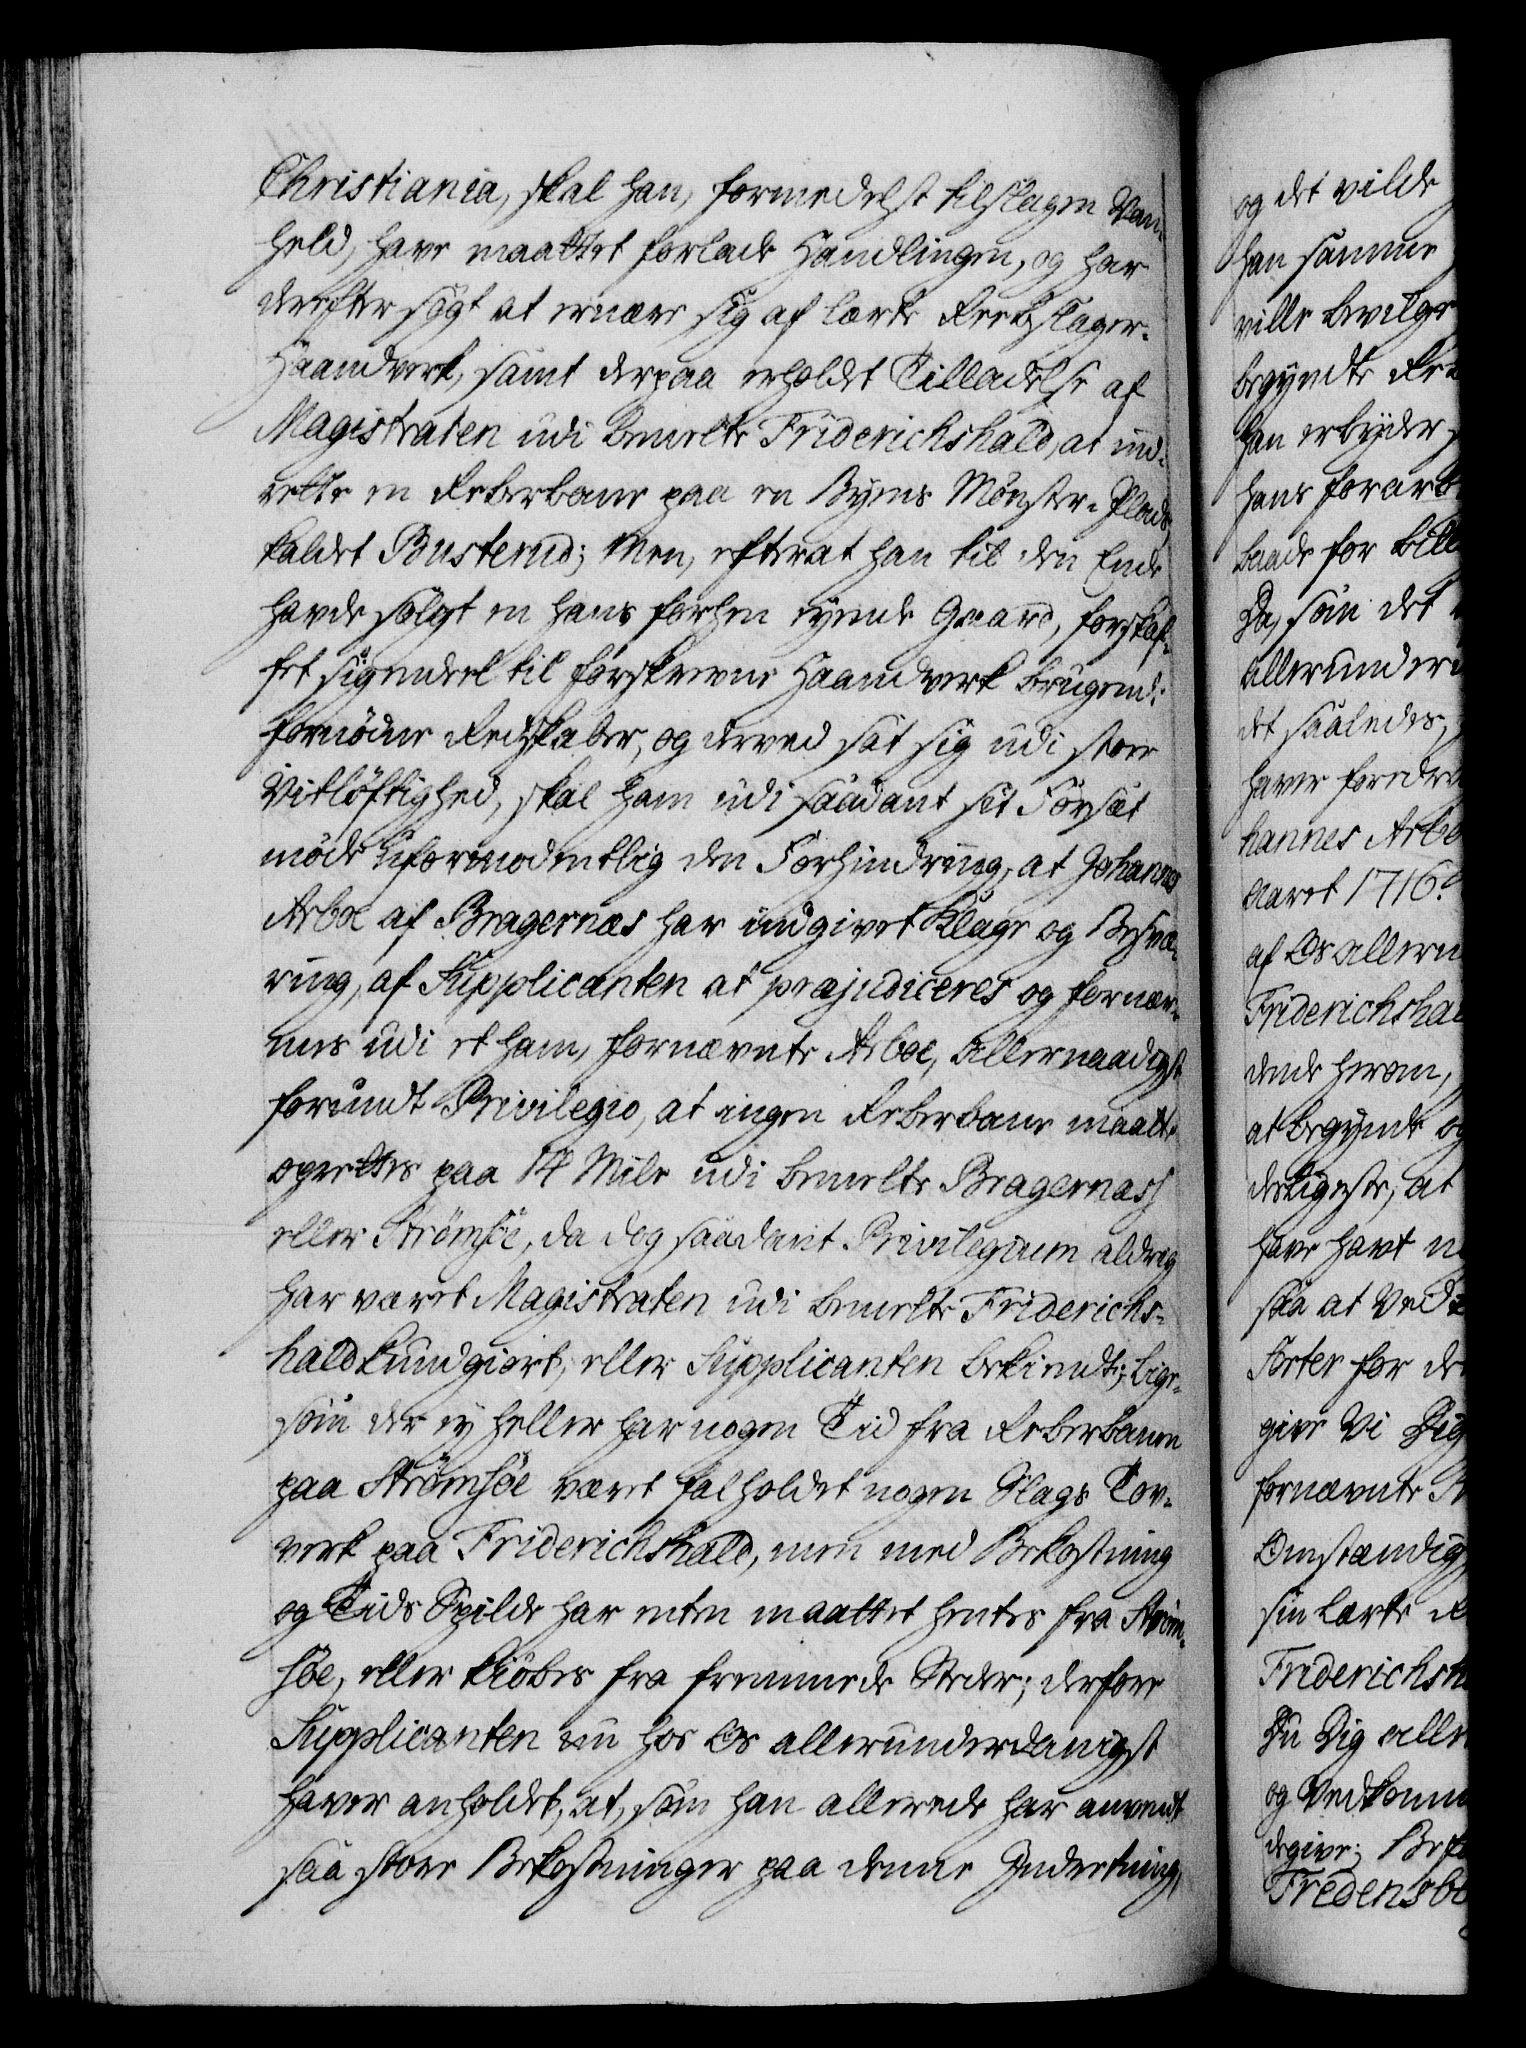 Christiania, skal han, formedelst tilslagen Van-
held, have maattet forlade Handlingen, og har
derefter søgt at ernære sig af lærte Reebslager-
Haandverk, samt derpaa erholdet Tilladelse af
Magistraten udi bemelte Friderichshald, at ind-
rette en Reberbane paa en Byens Mønster-Plads,
kaldet Busterud; Men, efterat han til den Ende
havde solgt en hans forhen eyende Gaard, forskaf-
fet sig endeel til forskrevne Haandverk brugend:
fornødne Redskaber, og derved sat sig udi stor
Vitløftighed, skal ham udi saadant sit Forsæt
møde uformodentlig den Forhindring, at Johannes
Arboe af Bragernæs har indgivet Klage og Besvæ-
ring, af Supplicanten at præjudiceres og fornær-
mes udi et ham, fornævnte Arboe, allernaadigst
forundt Privilegio, at ingen Reberbane maatte
oprettes paa 14 Mile udi bemelte Bragernæss
eller Strømsøe, da dog saadant Privilegium aldrig
har været Magistraten udi bemelte Friderichs-
hald kundgiort, eller Supplicanten bekiendt; lige-
som der ey heller har nogen Tid fra Reberbanen
paa Strømsøe været falholdet nogen Slags Tov-
verk paa Friderichshald, men med Bekostning
og Tids Spilde har enten maattet hentes fra Strøm-
søe, eller kiøbes fra fremmede Steder; derfore
Supplicanten nu hos Os allerunderdanigst
haver anholdet, at, som han allerede har anvendt
saa store Bekostninger paa denne Indretning,
og det vilde
han samme
ville bevilge
begyndte Re
han erbyder
hans forarb
baade for bill
Da, som det
allerunder
det saaledes,
haver foredra
hannes Arbo
Aaret 1716
af Os allern
Friderichshal
dende herom,
at begynde og
deligste, at
have havt
saa at ved
Sorter for de
give Vi Dig
fornævnte
Omstændig
sin lærte R
Friderichsh
Du Dig aller
og Vedkomm
degive; Bef
Fredensbo